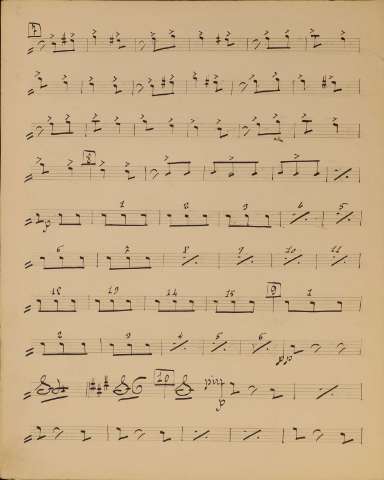 7
8
1 2 3 4 5
p
6 7 8 9 10 11
12 13 14 15 9 1
2 3 4 5 6
pp
10
p